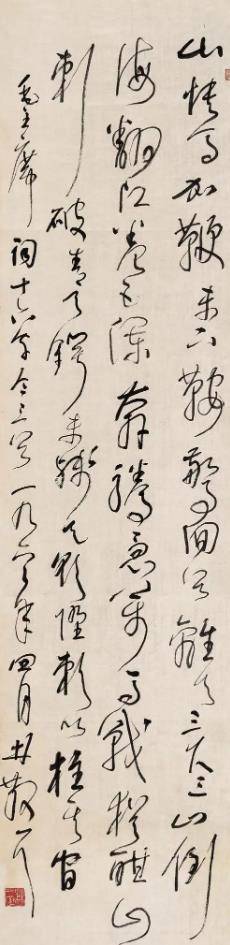 山快馬加鞭未下鞍驚回首離天三尺三山倒
海翻江卷巨瀾奔騰急萬馬戰猶酣山
刺破青天鍔未殘天欲墮賴以柱其間
毛主席詞十六字令三首一九年四月林散耳